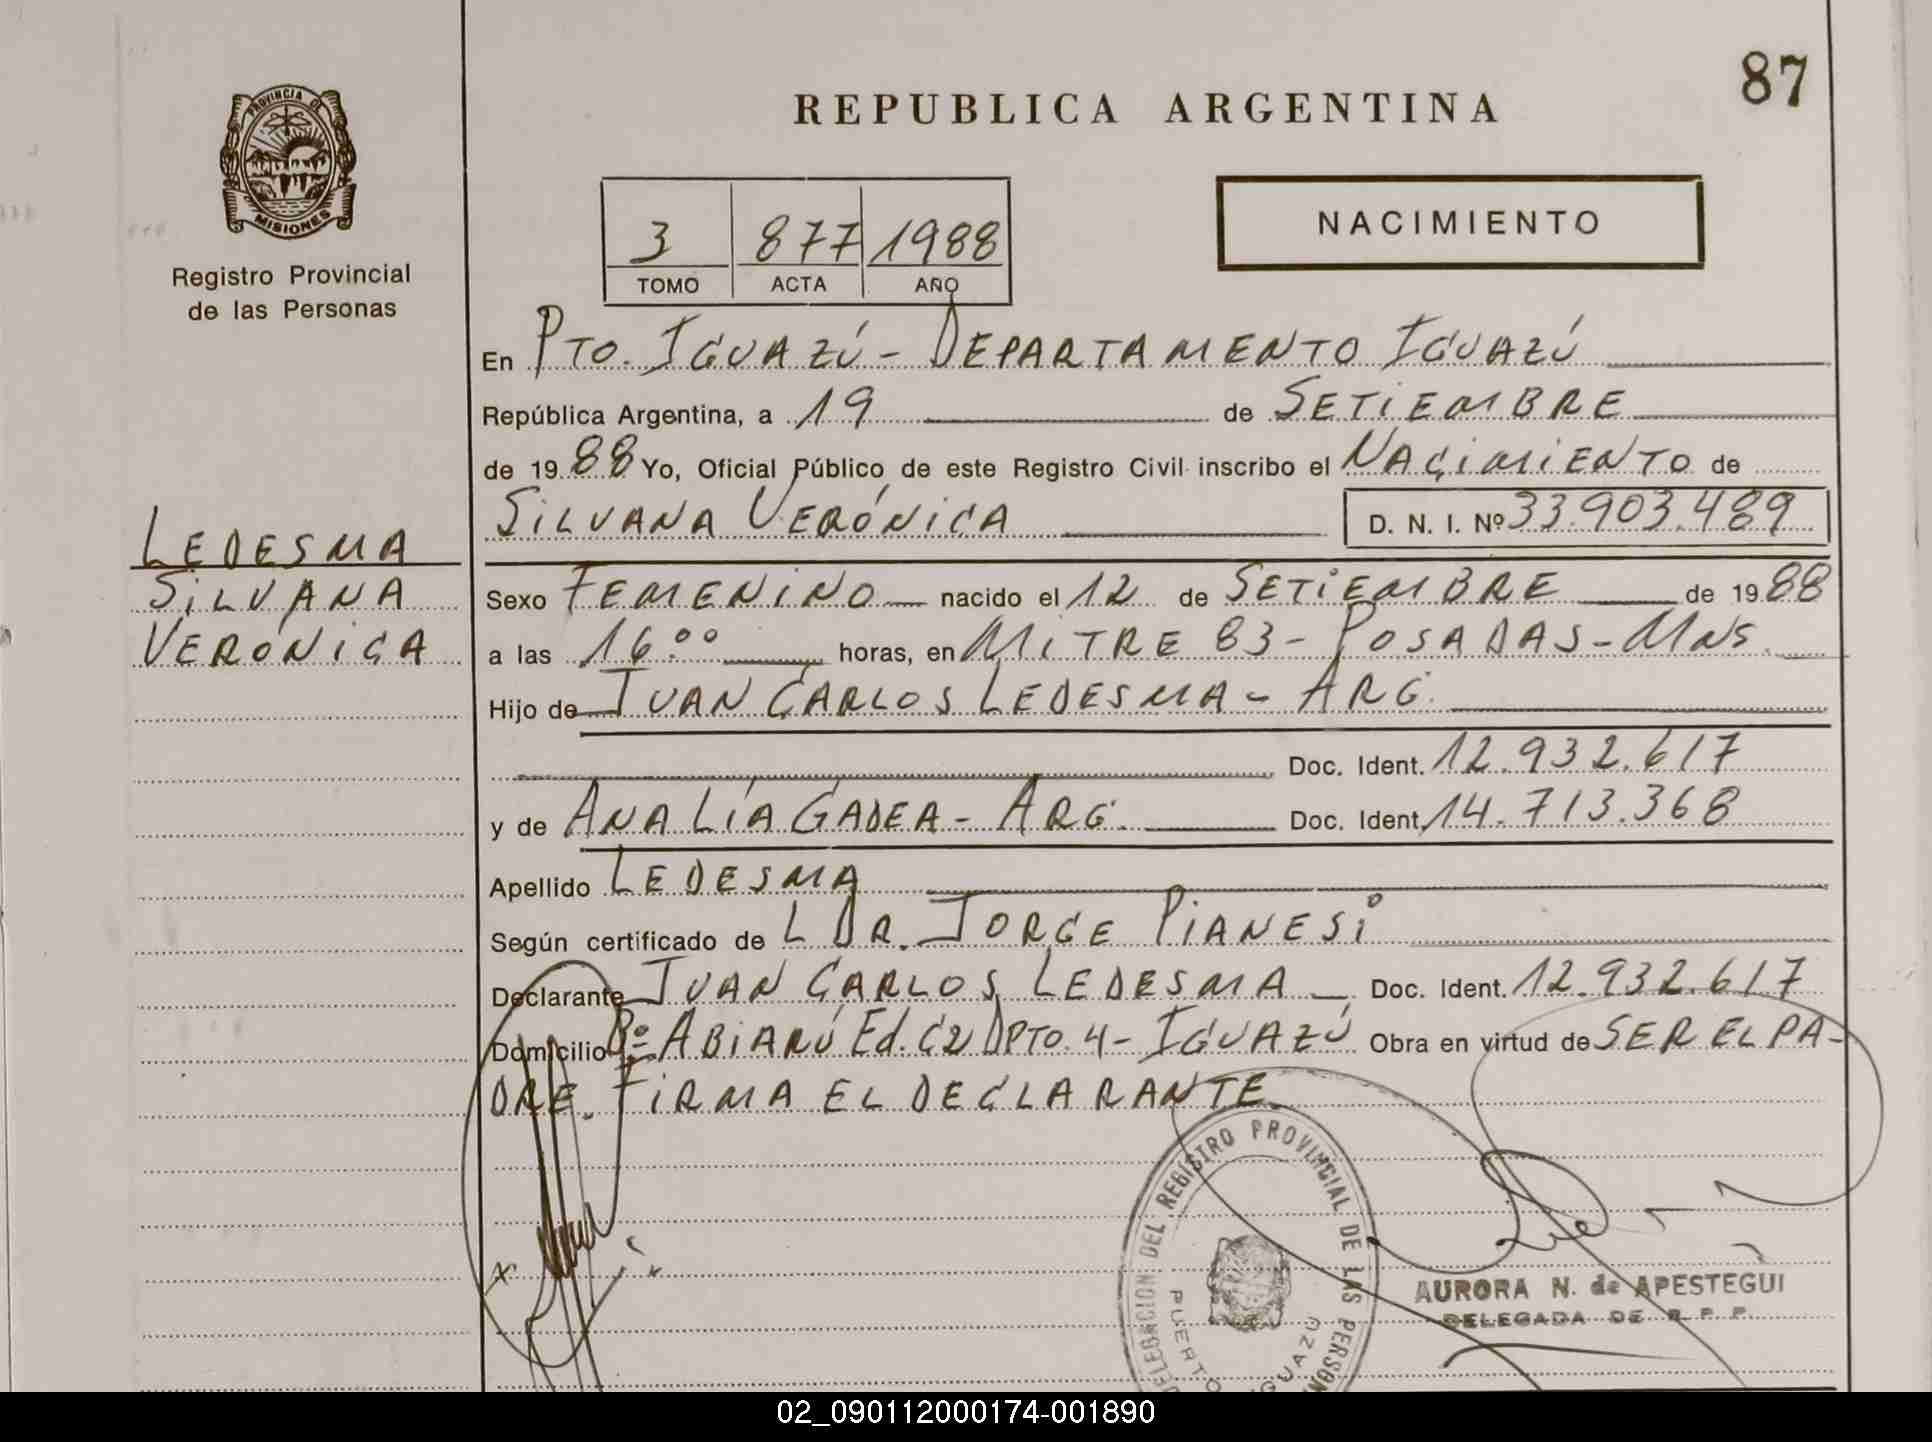 87
REPUBLICA ARGENTINA
PROVINCIA DE
MISIONES
Registro Provincial
de las Personas
NACIMIENTO
3 877 1988
TOMO ACTA AÑO
En PTO. IGUAZÚ - DEPARTAMENTO IGUAZÚ
República Argentina, a 19 de SETIEMBRE
de 1988 Yo, Oficial Público de este Registro Civil inscribo el NACIMIENTO de
SILVANA VERÓNICA D. N. I. Nº 33.903.489
LEDESMA
SILVANA
VERÓNICA
Sexo FEMENINO nacido el 12 de SETIEMBRE de 1988
a las 16:00 horas, en MITRE 83 - POSADAS - MNS.
Hijo de JUAN CARLOS LEDESMA - ARG.
Doc. Ident. 12.932.617
y de ANA LÍA GADEA - ARG. Doc. Ident. 14.713.368
Apellido LEDESMA
Según certificado de L DR. JORGE PIANESI
Declarante JUAN CARLOS LEDESMA Doc. Ident. 12.932.617
Domicilio Bº ABIARÚ Ed. C2 DPTO. 4 - IGUAZÚ Obra en virtud de SER EL PA-
DRE. FIRMA EL DECLARANTE.
DELEGACION DEL REGISTRO PROVINCIAL DE LAS PERSON
PUERTO IGUAZÚ
X
AURORA N. de APESTEGUI
DELEGADA DE R. P. P.
02_090112000174-001890